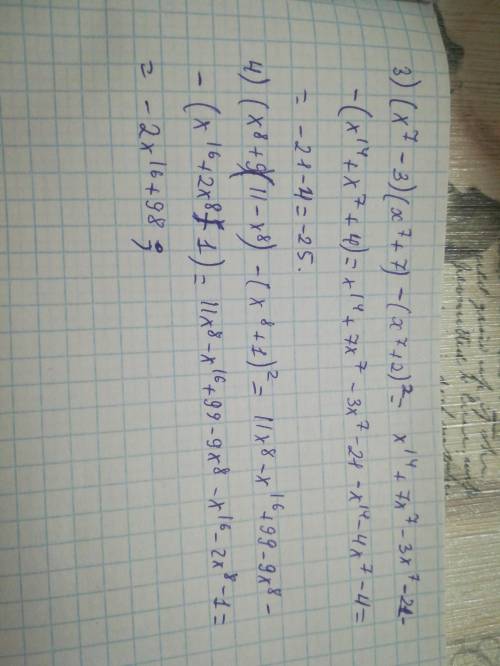 3) (x⁷ - 3)(x⁷ + 7) - (x⁷ + 2)² = x¹⁴ + 7x⁷ - 3x⁷ - 21 -
- (x¹⁴ + x⁷ + 4) = x¹⁴ + 7x⁷ - 3x⁷ - 21 - x¹⁴ - 4x⁷ - 4 =
= - 21 - 4 = - 25.
4) (x⁸ + 9)(11 - x⁸) - (x⁸ + 1)² = 11x⁸ - x¹⁶ + 99 - 9x⁸ -
- (x¹⁶ + 2x⁸ + 1) = 11x⁸ - x¹⁶ + 99 - 9x⁸ - x¹⁶ - 2x⁸ - 1 =
= - 2x¹⁶ + 98;